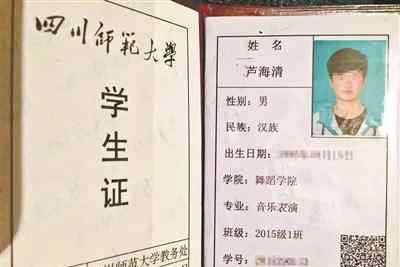 四川师范大学
学
生
证
师范大学教务处
制
姓 名
芦海清
性别：男
民族：汉族
出生日期：
学院：舞蹈学院
专业：音乐表演
班级：2015级1班
学号：